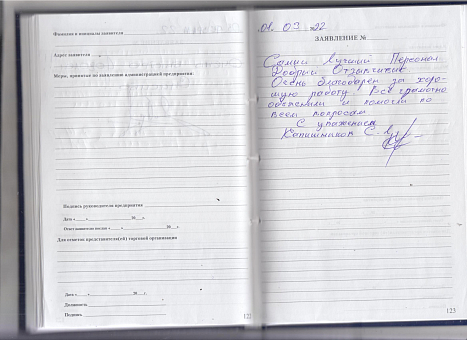 Фамилия и инициалы заявителя
Адрес заявителя
Меры, принятые по заявлению администрацией предприятия:
Подпись руководителя предприятия
Дата « » 20 г.
Ответ заявителю послан « » 20 г.
Для ответов представителя(ей) торговой организации
Дата « » 20 г.
Должность
Подпись
01.03.22
ЗАЯВЛЕНИЕ №
Самый лучший Персонал
Добрый Отзывчивый
Очень благодарен за хоро-
шую работу Всё грамотно
объяснили и помогли по
всем вопросам
С уважением
С.
123